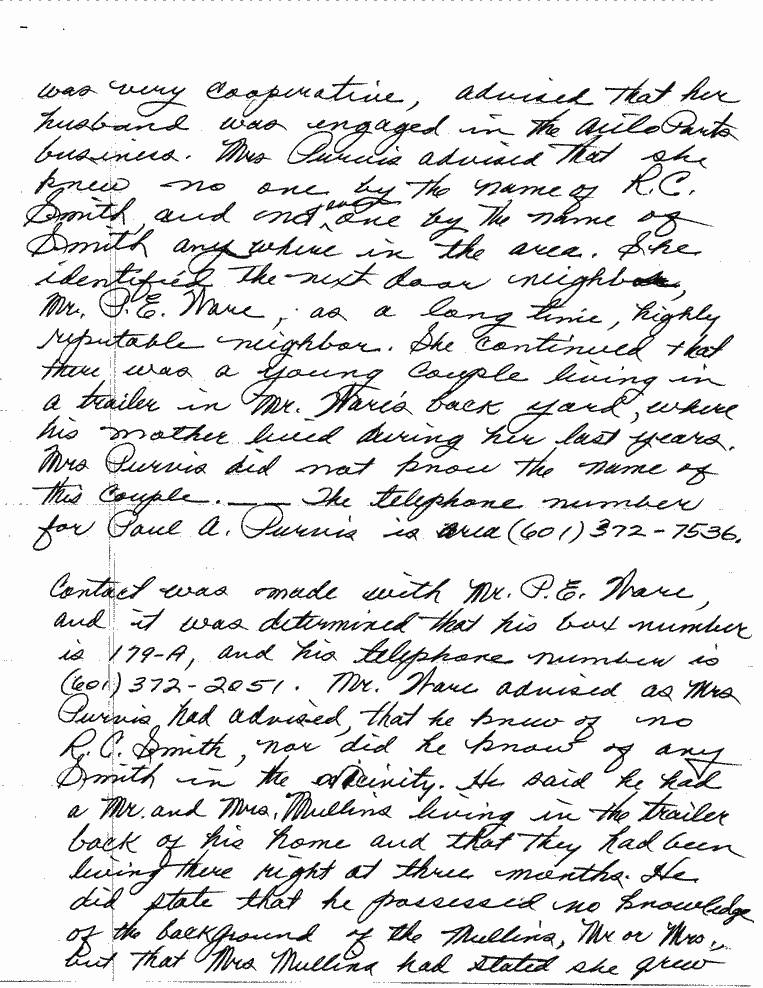 was very cooperative, advised that her
husband was engaged in the Auto Parts
business. Mrs Purvis advised that she
knew no one by the name of R.C.
Smith, and not one by the name of
Smith anywhere in the area. She
identified the next door neighbor,
Mr. P.E. Ware, as a long time, highly
reputable neighbor. She continued that
there was a young couple living in
a trailer in Mr. Ware's back yard, where
his mother lived during her last years.
Mrs Purvis did not know the name of
this couple. ___ The telephone number
for Paul A. Purvis is area (601) 372-7536.
Contact was made with Mr. P.E. Ware,
and it was determined that his box number
is 179-A, and his telephone number is
(601) 372-2051. Mr. Ware advised as Mrs
Purvis had advised, that he knew of no
R.C. Smith, nor did he know of any
Smith in the vicinity. He said he had
a Mr. and Mrs. Mullins living in the trailer
back of his home and that they had been
living there right at three months. He
did state that he possessed no knowledge
of the background of the Mullins, Mr or Mrs.,
but that Mrs Mullins had stated she grew